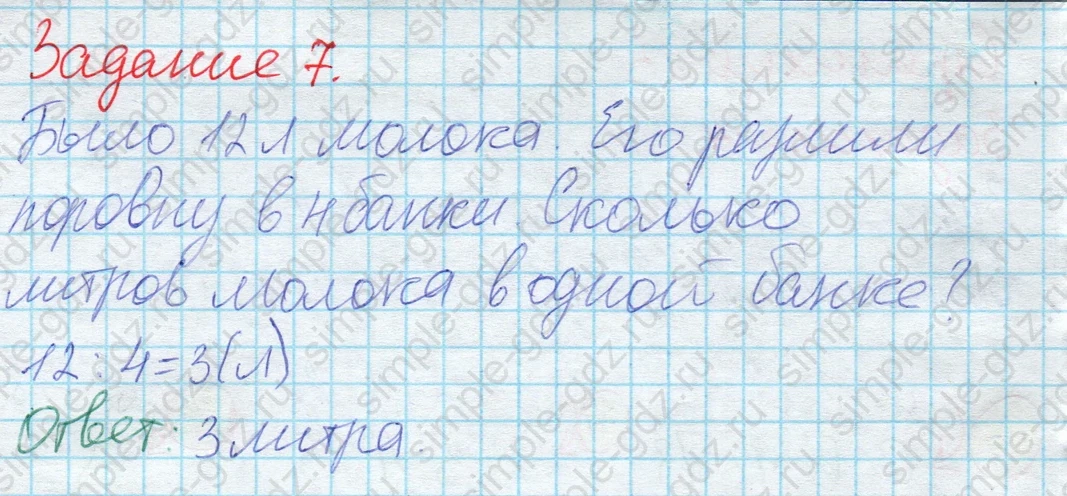 Задание 7.
Было 12 л молока. Его разлили
поровну в 4 банки. Сколько
литров молока в одной банке?
12 : 4 = 3 (л)
Ответ: 3 литра.
simple-gdz.ru